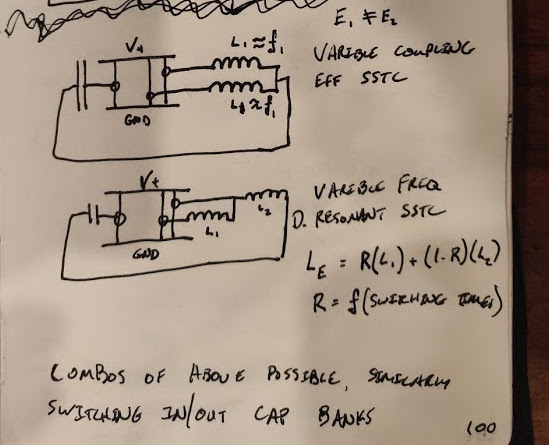 E₁ ≠ E₂
V+
L₁ ≈ f₁
L₂ ≈ f₁
GND
VARIBLE COUPLING
EFF SSTC
V+
L₂
L₁
GND
VARIBLE FREQ
D. RESONANT SSTC
L_E = R(L₁) + (1-R)(L₂)
R = f(SWITCHING TIMES)
COMBOS OF ABOVE POSSIBLE, SIMILARLY
SWITCHING IN/OUT CAP BANKS
100